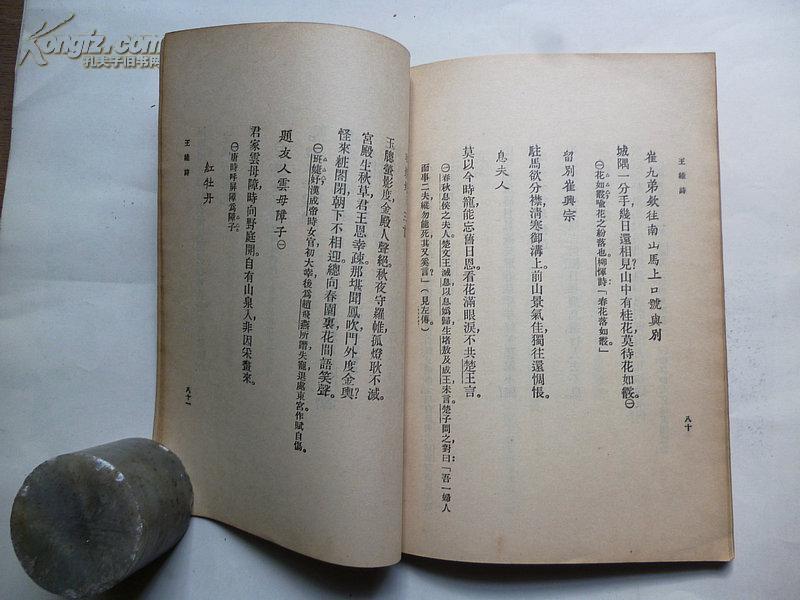 Kongfz.com
孔夫子旧书网
王維詩
崔九弟欲往南山馬上口號與別
城隅一分手,幾日還相見?山中有桂花,莫待花如霰。㊀
㊀花如霰喻花之紛落也。柳惲詩「春花落如霰」
留別崔興宗
駐馬欲分襟,清寒御溝上。前山景氣佳,獨往還惆悵。
息夫人
莫以今時寵,能忘舊日恩。看花滿眼淚,不共楚王言。
㊀春秋息侯之夫人。楚文王滅息,以息嬀歸,生堵敖及成王,未言。楚子問之,對曰:「吾一婦人
而事二夫,縱勿能死,其又奚言?」(見左傳)
八十
玉牕螢影度,金殿人聲絕。秋夜守羅帷,孤燈耿不滅。
宮殿生秋草,君王恩幸疎。那堪聞鳳吹,門外度金輿?
怪來粧閣閉,朝下不相迎。總向春園裏,花間語笑聲。
㊀班婕妤,漢成帝時女官,初大幸,後爲趙飛燕所譖失寵,退處東宮,作賦自傷。
題友人雲母障子㊀
君家雲母障,時向野庭開。自有山泉入,非因采畫來。
㊀唐時呼屏障爲障子。
紅牡丹
王維詩
八十一